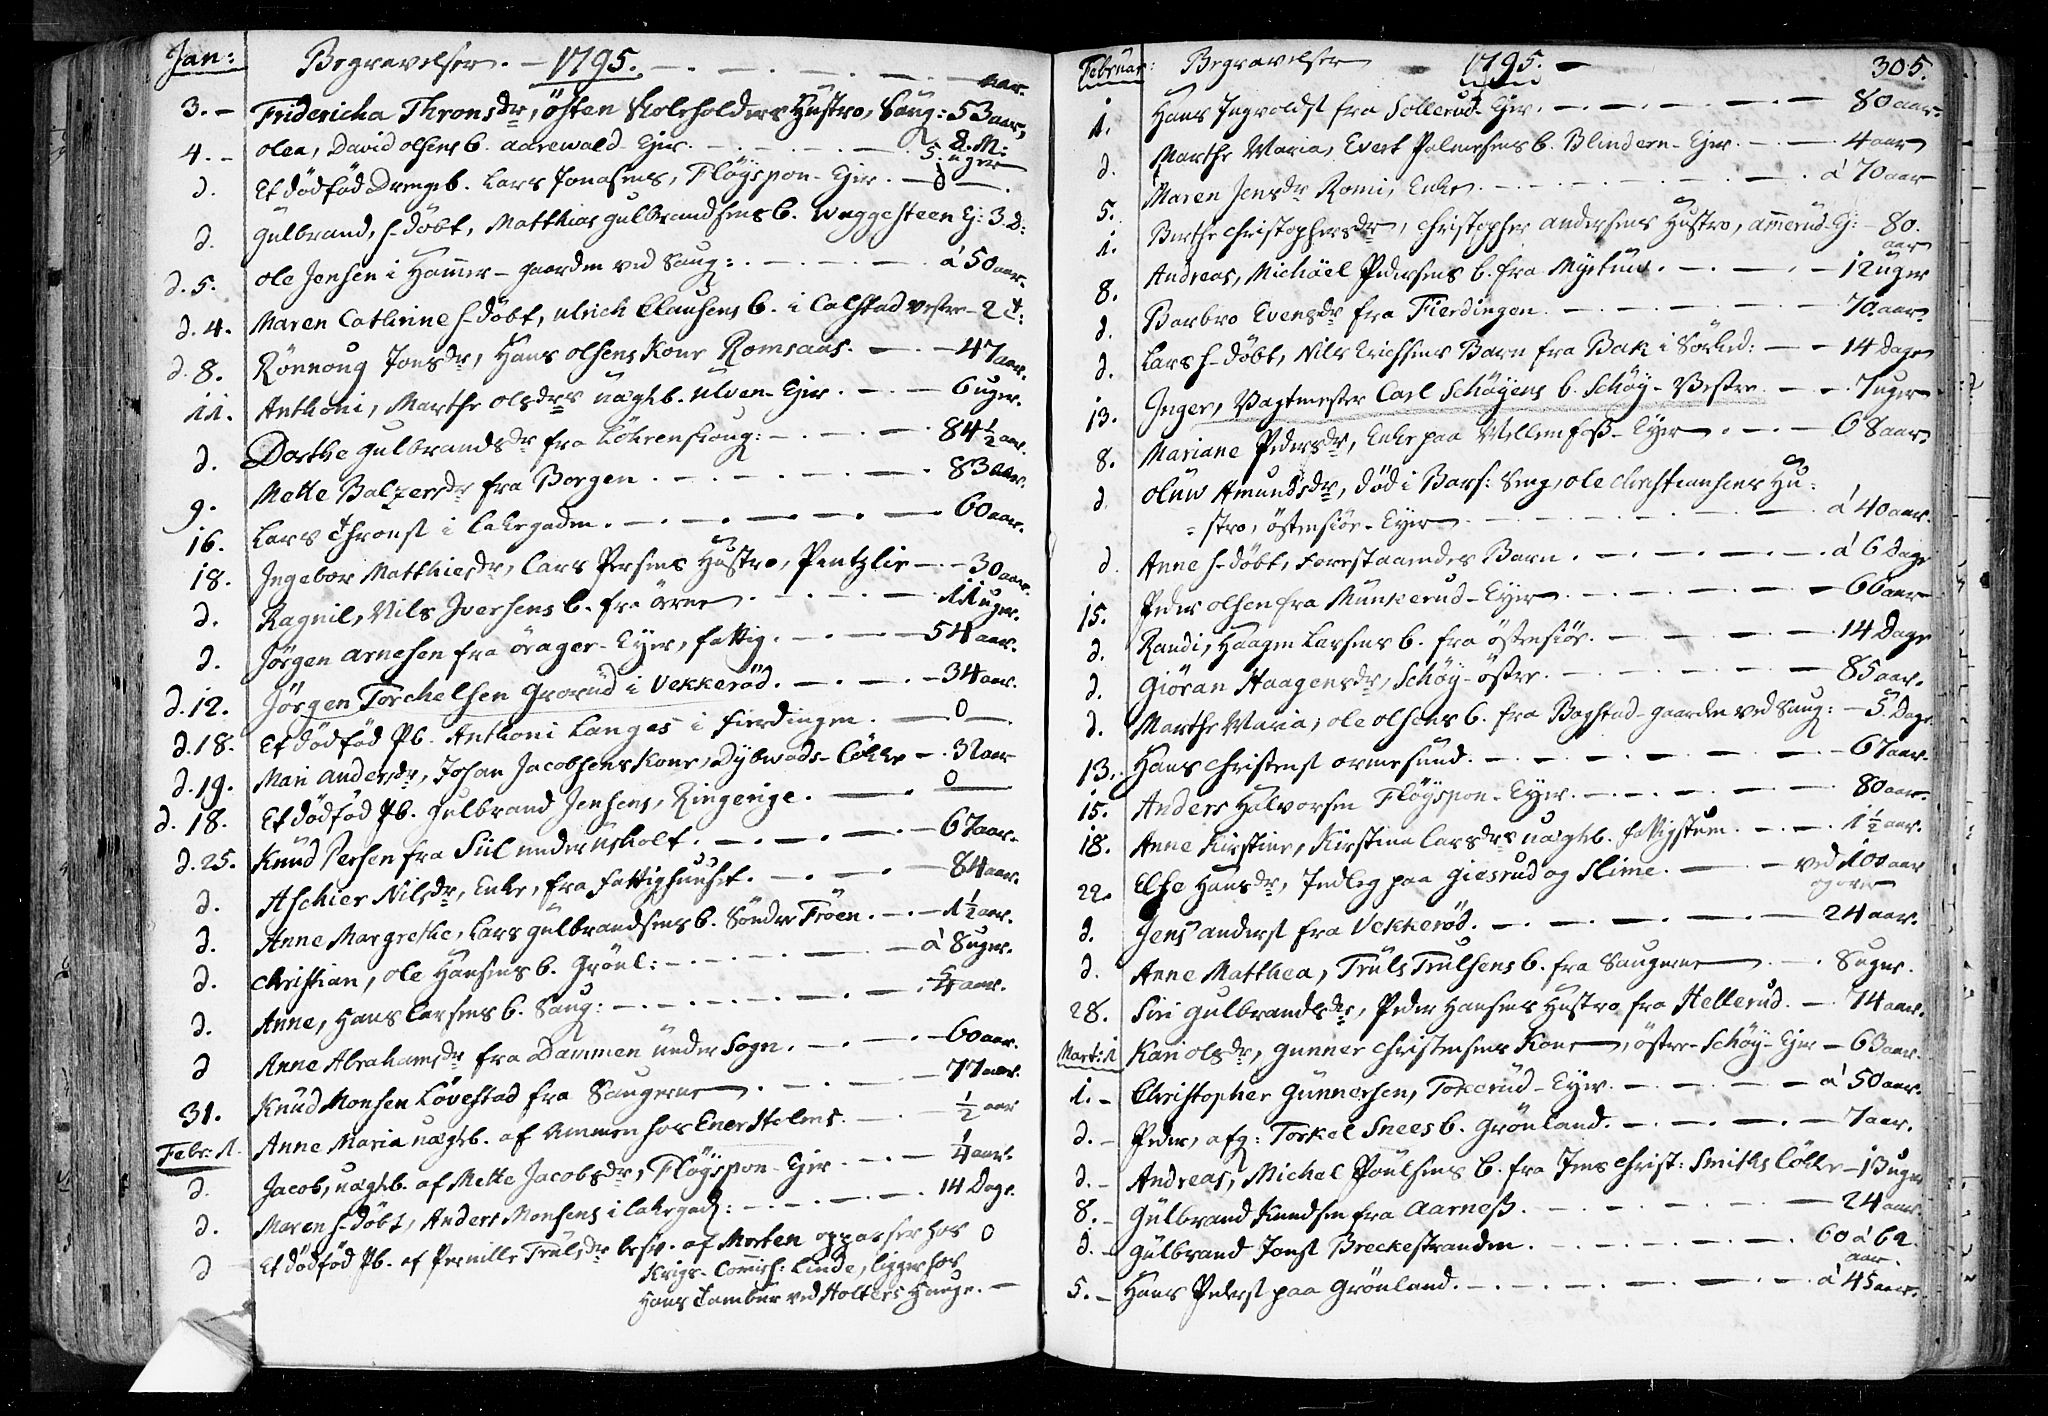 Jan: Begravelser. - 1795. aar.
3. - Fridericha Throns dr, östen Skoleholders Hustro, Saug: 53 aar, 8. M:
4. - olea, David olsens b. aarewald-Ejer. 5. uger
d. Et dödfød Drengeb. Lars Jonasens, Fløyspon-Ejer. 0
d. Gulbrand, h-døbt, Matthias gulbrandsens b. Waggesteen Ej: 3. D:
d. 5. ole Jensen i Hamer-gaarden ved Saug: á 50 aar.
d. 4. Maren Cathrine h-døbt, ulrich Clausens b. i Calstad vestre - 2 t:
d. 8. Rönnoug Jons dr, Hans olsens Kone Romsaas. 47 aar.
11. Anthoni, Marthe ols drs uægtb. ulven-Ejer. 6 uger.
d. Dorthe gulbrands dr fra Löhrenskoug: 84 1/2 aar.
9. Mette Balzers dr fra Borgen. 83 aar.
16. Lars Thronss i Lakegaden. 60 aar.
18. Ingebor Matthies dr, Lars Persens Hustro, Pentzlie - 30 aar.
d. Ragnil, Nils Iversens b. fra örne 11 uger.
d. Jörgen arnesen fra örager-Eyer, fattig. 54 aar.
d. 12. Jörgen Torchelsen Grorud i Vekkeröd. 34 aar.
d. 18. Et dödfød Pb. Anthoni Langes i fierdingen. 0
d. 19. Mari anders dr, Johan Jacobsens Kone, Dybwads-Løkke - 32 aar
d. 18. Et dödfød Pb. Gulbrand Jensens, Ringerige. 0
d. 25. Knud Persen fra Siil under uskolt. 67 aar.
d. Aschier Nils dr, Enke, fra fattighuuset. 84 aar.
d. Anne Margrethe, Lars gulbrandsens b. Söndre Fröen. 1 1/2 aar.
d. christian, ole Hansens b. Grönl: á 8 uger.
d. Anne, Hans Larsens b. Saug: 5/4 aar.
d Anne Abrahams dr fra Dammen under Sogn. 60 aar.
31. Knud Monsen Lövestad fra Saugerne 77 aar.
Febr. 1. Anne Maria uægtb. af Ammen hos Ener Holms. 1/2 aar
d. Jacob, uægtb. af Mette Jacobs dr, Fløyspon-Ejer 1/4 aar.
d. Maren h-døbt, Anders Monsens i Lakegad: 14 Dage.
d Et dödfød Pb. af Pernille Truls dr besv. af Morten oppasser hos 0
Krigs-Commiss: Linde, ligger hos
Hans Tambur ved Holters Hauge.
Februar: Begravelser 1795. 305.
1. Hans Ingvoldss fra Sollerud-Ejer. 80 aar.
d. Marthe Maria, Evert Palmesens b. Blindern-Ejer. 4 aar
5. Maren Jens dr Romi, Enke. á 70 aar
1. Berthe christophers dr, christopher andersens Hustro, amerud-Ej: 80. aar
8. Andreas, Michäel Pedersens b. fra Myelund. 12 uger
d. Barbro Evens dr fra Fierdingen. 70 aar.
d. Lars h-døbt, Nils Erichsens Barn fra Bak i Sörked: 14 Dage
13. Inger, Vagtmester Carl Schöyens b. Schöy-Vestre. 7 uger
8. Mariane Peders dr, Enke paa Mellemfoss-Eyer. 68 aar
d. oluw Amunds dr, död i Bars: Seng, ole christiansens Hu:
=stro, östensiöe-Eyer á 40 aar.
d. Anne h-døbt, Forestaaendes Barn. á 6 Dage
15. Peder olsen fra Munkerud-Eyer. 66 aar
d. Randi, Haagen Larsens b. fra östensiöe. 14 Dage
d. Giöran Haagens dr, Schöy-östre. 85 aar.
d. Marthe Maria, ole olsens b. fra Bogstad-gaarden ved Saug: 5 Dage.
13. Hans Christenss ormesund. 67 aar.
15. Anders Halvorsen Fløyspon-Eyer. 80 aar.
18. Anne Kirstine, Kirstina Lars drs uægtb. fattigstuen. 1 1/2 aar.
22. Else Hans dr, Indleg paa Giesrud og Slime. ved 100 aar
og over
d. Jens anderss fra Vekkeröd. 24 aar.
d. Anne Matthea, Truls Trulsens b. fra Saugerne 8 uger.
28. Siri gulbrands dr, Peder Hansens Hustro fra Hellerud. 74 aar.
Mart: 1 Kari ols dr, gunner christensens Kone, östre-Schöy-Ejer - 63 aar.
1. - Christopher Gunnersen, Tokerud-Eyer. á 50 aar.
d. - Peder, afg: Torkel Snees b. Grönland. 7 aar.
d. - Andreas, Michel Poulsens b. fra Jens Christ: Smiths Løkke - 13 uger
8. - Gulbrand Knudsen fra Aarness. 24 aar.
d. - Gulbrand Jonss Breckestranden. 60 á 62. aar.
5. - Hans Pederss paa Grönland. á 45 aar.